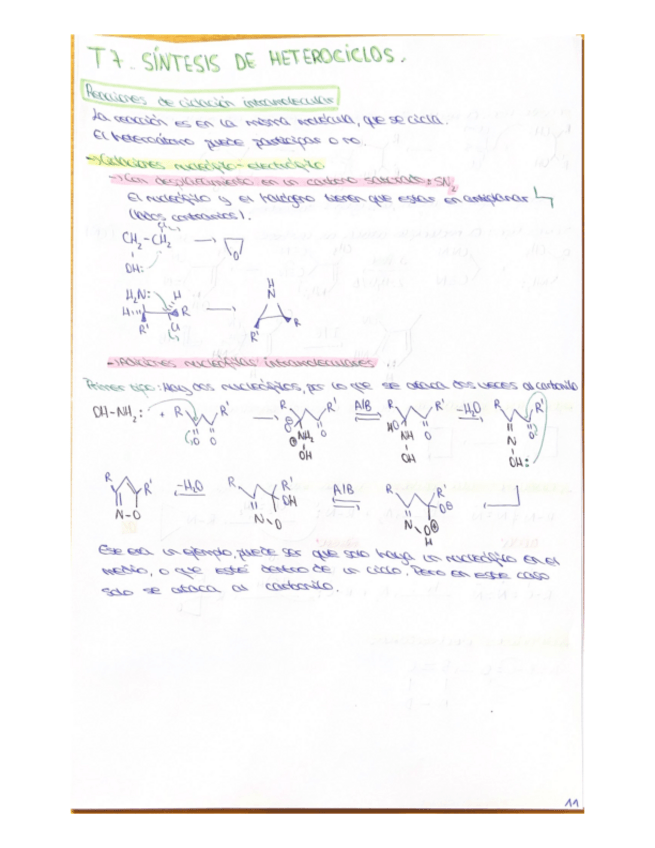 T7. SÍNTESIS DE HETEROCICLOS.
Reacciones de ciclación intramolecular
La reacción es en la misma molécula, que se cicla.
El heteroátomo puede participar o no.
→Ciclaciones nucleófilo-electrófilo
→Con desplazamiento en un carbono saturado: SN2
El nucleófilo y el halógeno tienen que estar en antiplanar
(lados contrarios).
CH2-CH2 → O
OH:
H2N: H H → H N
H R
R' Cl R' R
→Adiciones nucleófilas intramoleculares
Primer tipo: Hay dos nucleófilos, por lo que se ataca dos veces al carbonilo
OH-NH2: + R R' → R R' A/B R R' -H2O R R'
O O ⊖O ⊕NH2 O HO NH O N O
OH OH OH:
R R' -H2O R R' OH A/B R R' O⊖
N-O N O N O⊕
H
Ese era un ejemplo, puede ser que solo haya un nucleófilo en el
medio, o que esté dentro de un ciclo. Pero en este caso
solo se ataca al carbonilo.
11